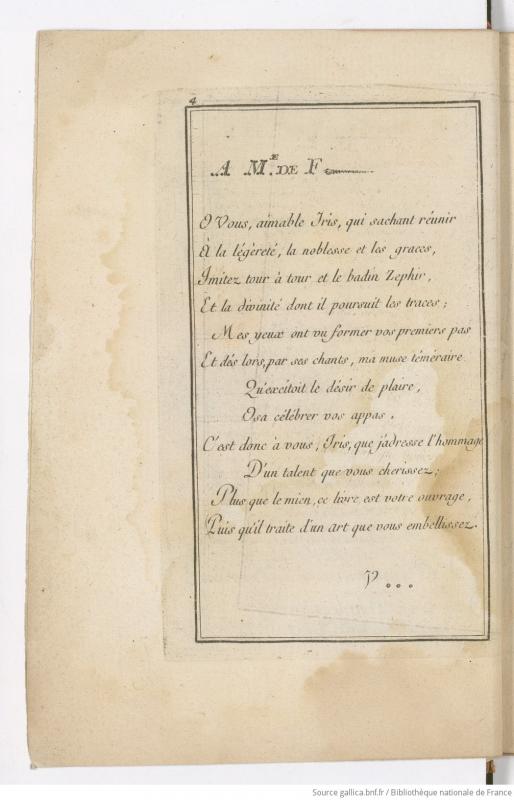 4
A M.E DE F
O Vous, aimable Iris, qui sachant réunir
À la légèreté, la noblesse et les graces,
Imitez tour à tour et le badin Zephir,
Et la divinité dont il poursuit les traces ;
Mes yeux ont vû former vos premiers pas
Et dés lors, par ses chants, ma muse téméraire
Qu'excitoit le désir de plaire,
Osa célébrer vos appas.
C'est donc à vous, Iris, que j'adresse l'hommage
D'un talent que vous cherissez ;
Plus que le mien, ce livre est votre ouvrage,
Puis qu'il traite d'un art que vous embellissez.
V...
Source gallica.bnf.fr / Bibliothèque nationale de France